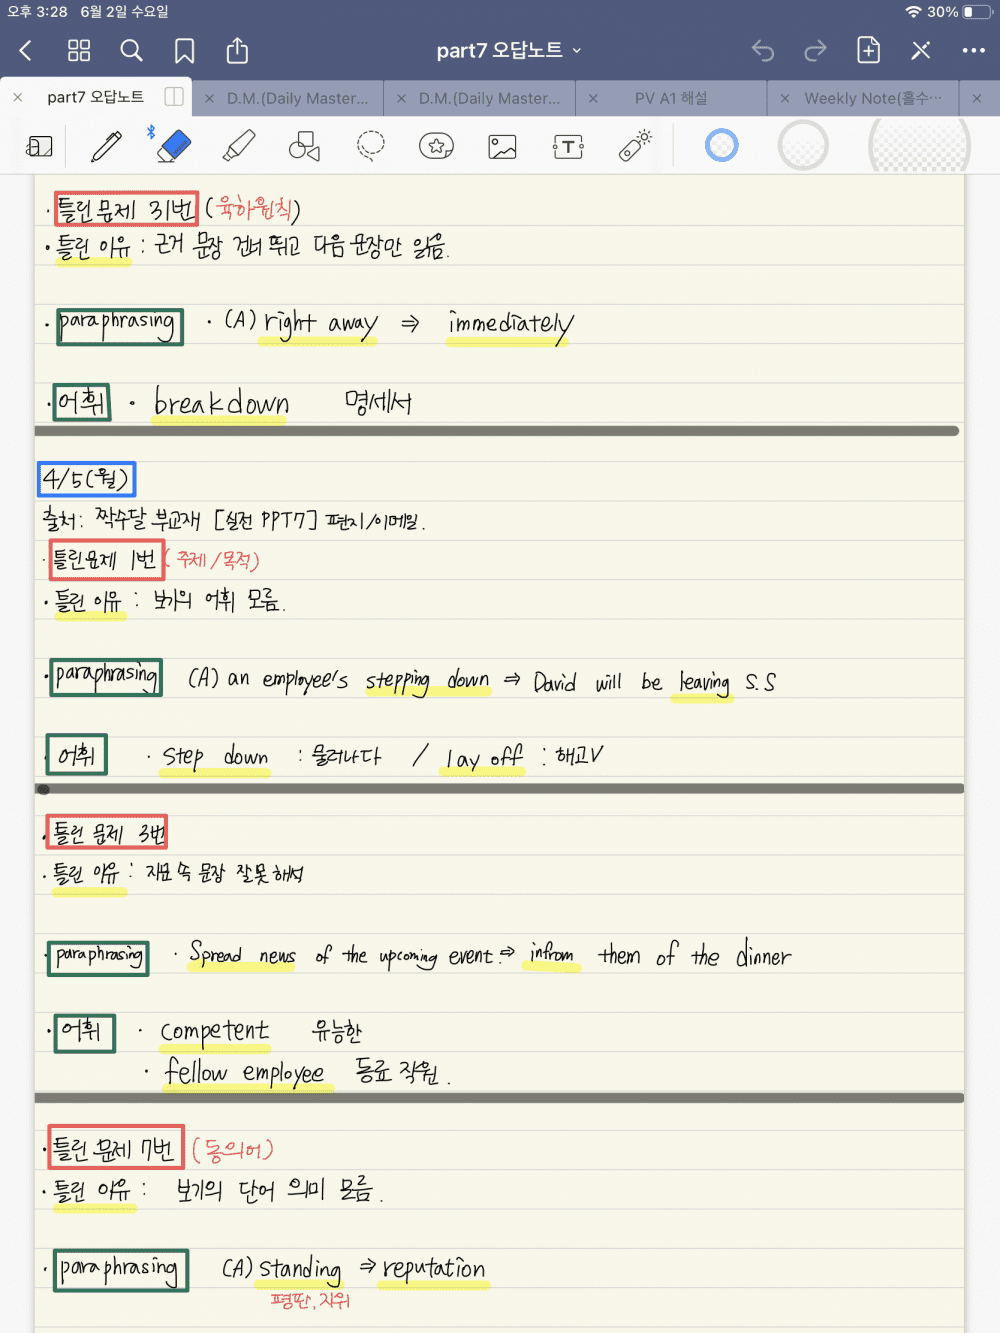 오후 3:28 6월 2일 수요일 30%
part7 오답노트
part7 오답노트 D.M.(Daily Master... D.M.(Daily Master... PV A1 해설 Weekly Note(홀수...
· 틀린문제 31번 (육하원칙)
· 틀린 이유 : 근거 문장 건너 뛰고 다음 문장만 읽음.
· paraphrasing · (A) right away ⇒ immediately
· 어휘 · breakdown 명세서
4/5(월)
출처: 짝수달 부교재 [실전 PPT7] 편지/이메일.
· 틀린문제 1번 (주제/목적)
· 틀린 이유 : 보기의 어휘 모름.
· paraphrasing (A) an employee's stepping down ⇒ David will be leaving S.S
· 어휘 · step down : 물러나다 / lay off : 해고V
· 틀린 문제 3번
· 틀린 이유 : 지문 속 문장 잘못 해석
· paraphrasing · Spread news of the upcoming event. ⇒ infrom them of the dinner
· 어휘 · competent 유능한
· fellow employee 동료 직원.
· 틀린 문제 7번 (동의어)
· 틀린 이유 : 보기의 단어 의미 모름.
· paraphrasing (A) standing ⇒ reputation
평판, 지위